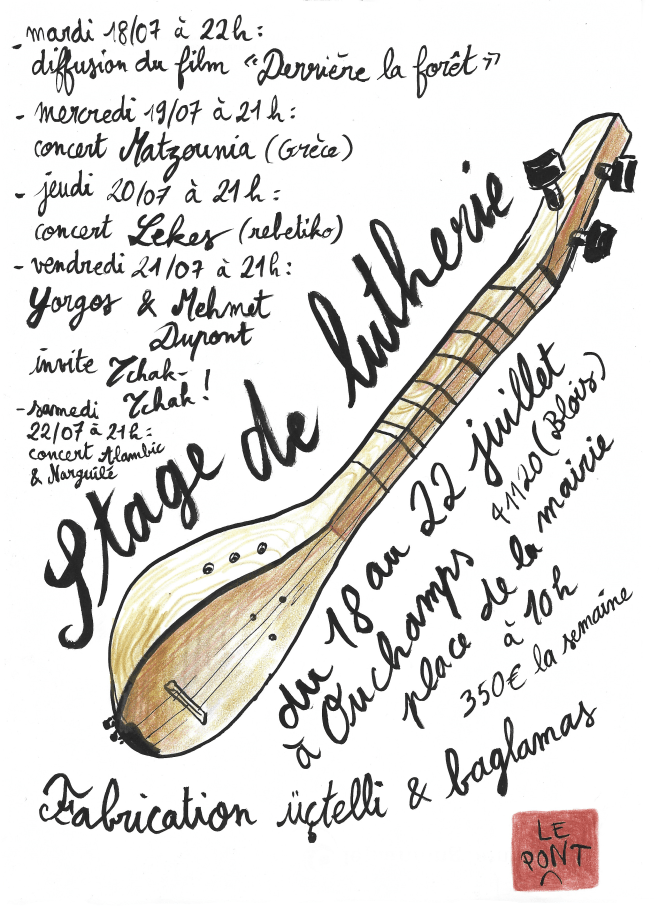 - mardi 18/07 à 22h :
diffusion du film "Derrière la forêt"
- mercredi 19/07 à 21h :
concert Matzounia (Grèce)
- jeudi 20/07 à 21h :
concert Lekes (rebetiko)
- vendredi 21/07 à 21h :
Yorgos & Mehmet
Dupont
invite Tchak-
Tchak !
- samedi
22/07 à 21h :
concert Alambic
& Narguilé
Stage de lutherie
du 18 au 22 juillet
à Ouchamps 41120 (Blois)
place de la mairie
à 10h
350€ la semaine
Fabrication üçtelli & baglamas
LE
PONT